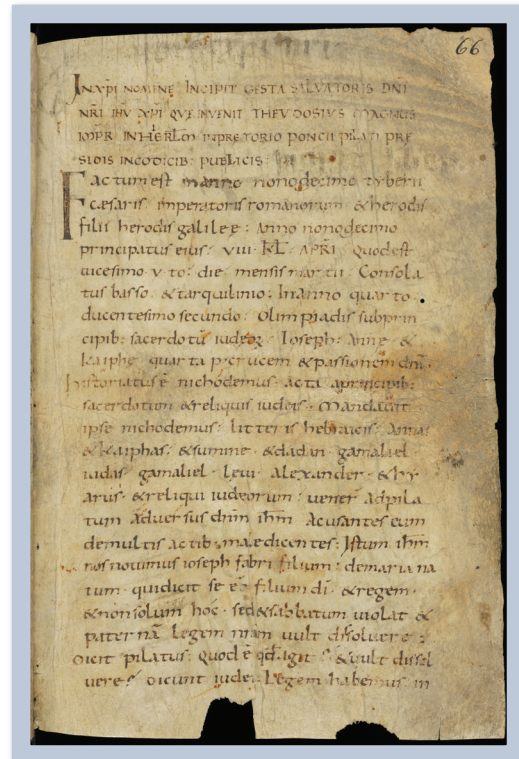 66
IN XPI NOMINE INCIPIT GESTA SALVATORIS DNI
NRI IHU XPI QUE INVENIT THEVDOSIVS MAGNUS
IMPR IN HIERLM IN PRETORIO PONCII PILATI PRE
SIDIS IN CODICIB: PUBLICIS:
Factum est in anno nonodecimo tyberii
cæsaris imperatoris romanorum & herodis
filii herodis galilee: Anno nonodecimo
principatus eius· VIII· KL· APRI· Quod est
uicesimo v to: die mensis martii· Consola
tus basso· & tarquilinio: In anno quarto·
ducentesimo secundo· Olimpiadis sub prin
cipib: sacerdotu iudeoꝝ· Ioseph: Anne &
Kaiphe· quarta p crucem & passionem dni·
historiatus ē nichodemus· acta a principib:
sacerdotum & reliquis iudeis· Mandauit
ipse nichodemus: litteris hebraicis· Annas
& Kaiphas: & summe· & dadan· gamaliel
iudas· gamaliel· leui· Alexander· & hy
arus· & reliqui iudeorum: uener ad pila
tum aduersus dnm ihm· Acusantes eum
de multis actib; mae dicentes: Istum ihm
nos nouimus ioseph fabri filium: de maria na
tum· qui dicit se eē filium di· & regem·
& non solum hoc· sed & sabbatum uiolat &
paternā legem nram uult dissoluere:
Dicit pilatus: quod ē qd agit? & uult dissol
uere? Dicunt iudei: Legem habemus in